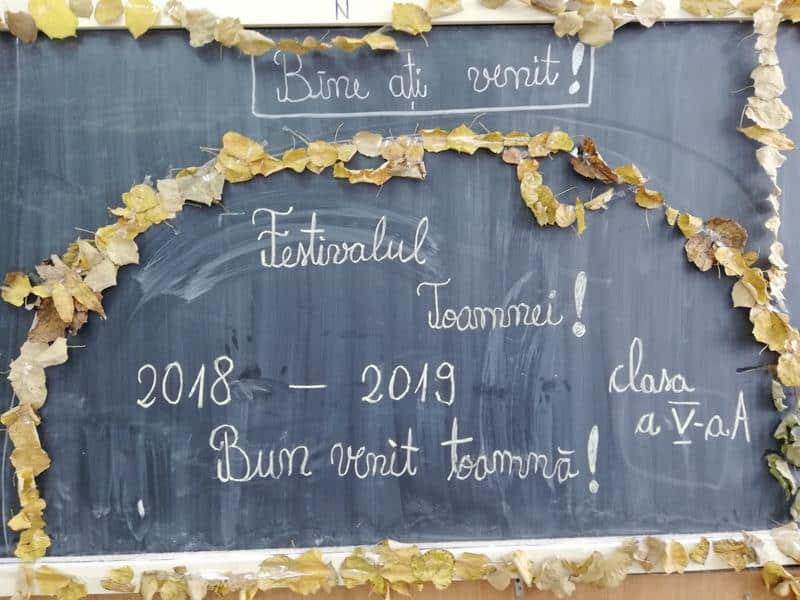 N
Bine ați venit!
Festivalul
Toamnei!
2018 – 2019
clasa
a V-a A
Bun venit toamnă!